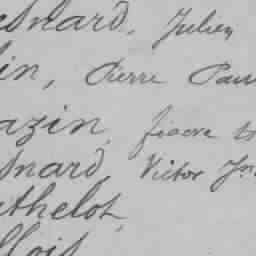 esnard, Julien
in, Pierre Pau
azin, fiacre
snard, Victor Jn
thelot,
llois